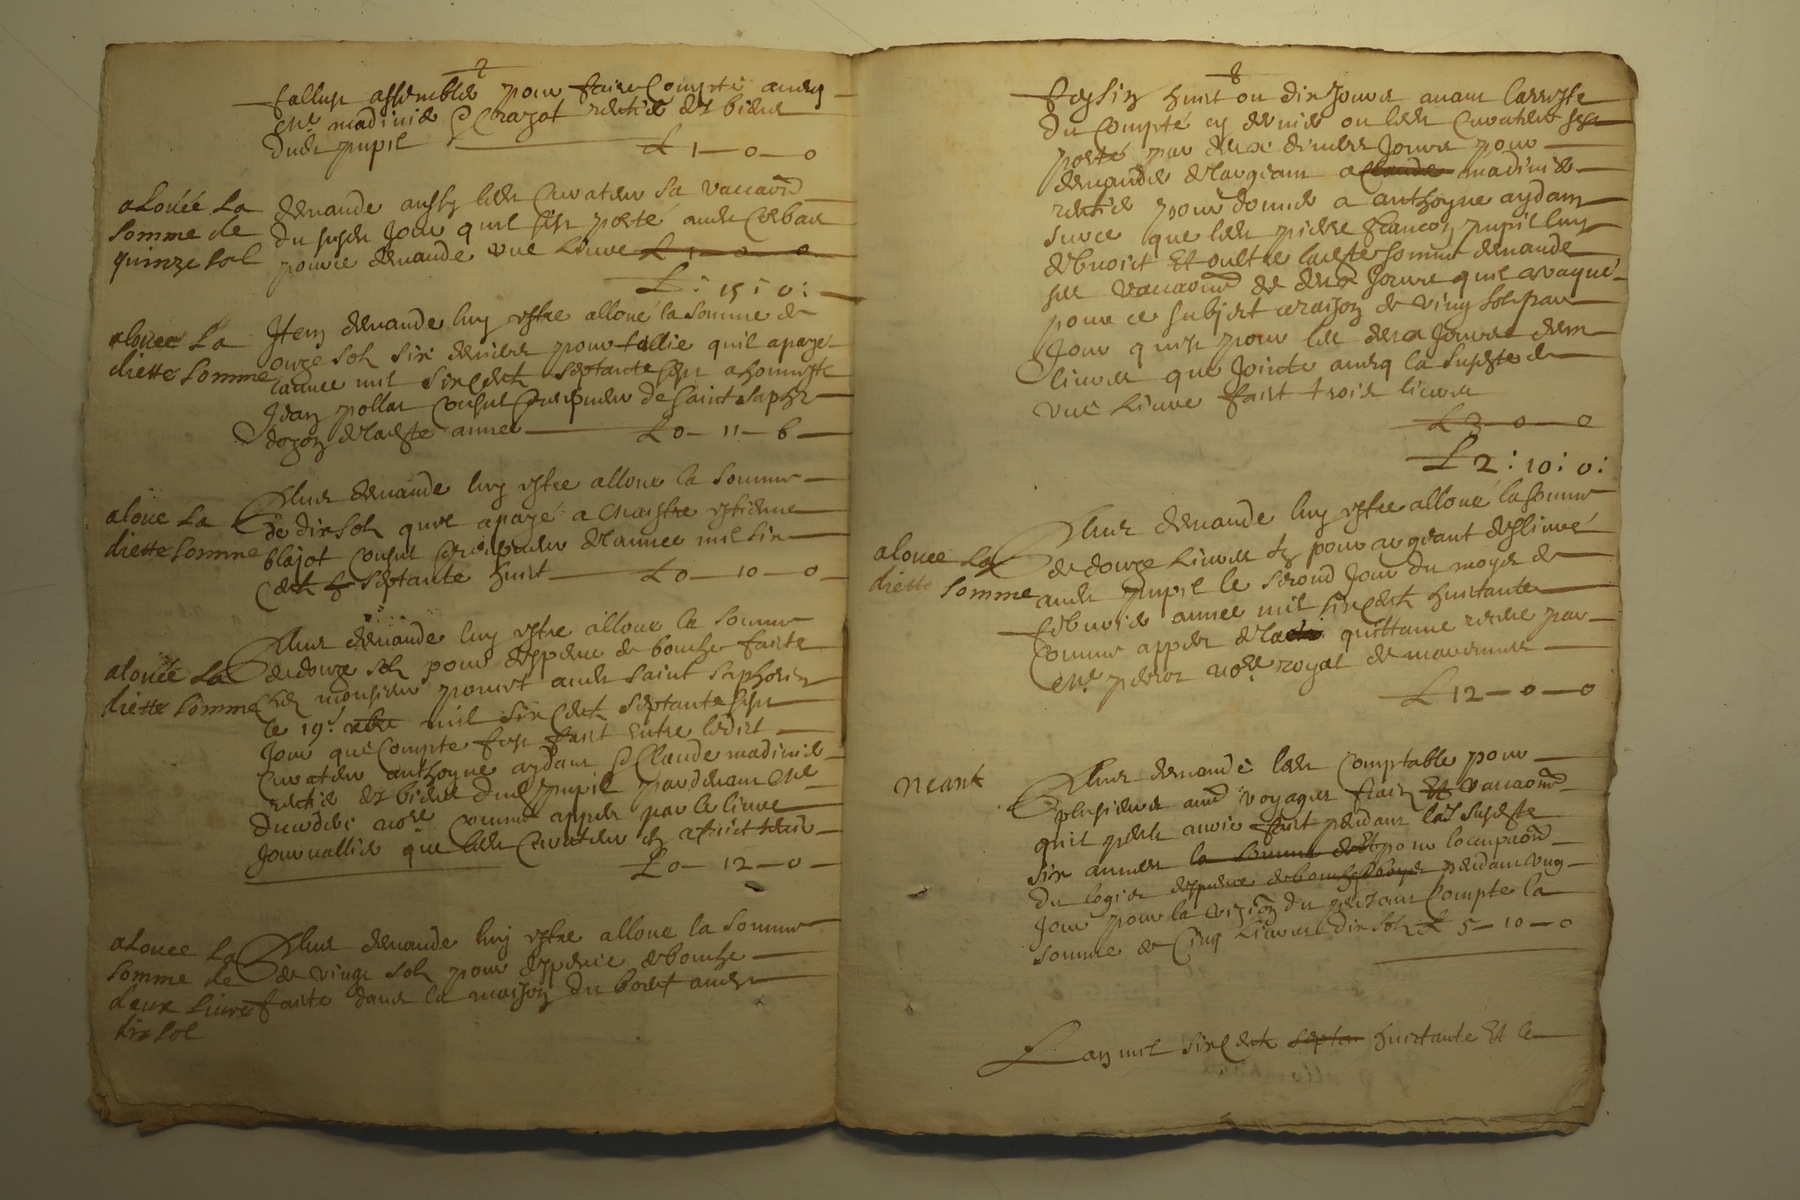 7
fallust assembler pour faire compte avecq
Me madinié & Crazot rentier des biens
dudt pupil £ 1 — 0 — 0
alouée la
somme de
quinze sol
demande aussy ledt Curateur sa vaccaon
du susdt jour quil sest porté audt Corbas
pource demande une livre £ 1 — 0 — 0
£ : 15 : 0 :
alouée la
diette somme
Item demande luy estre alloué la somme de
onze sols six deniers pour tallie quil a payé
lannee mil six cents septante sept a honneste
Jean pollat consul de saint saphr
dozon deladte annee £ 0 — 11 — 6
aloue la
diette somme
Plus demande luy estre alloue la somme
de dix sols quil a payé a maistre estienne
blajot consul delannee mil six
cents septante huit £ 0 — 10 — 0
alouée la
diette somme
Plus demande luy estre alloue la somme
de douze sols pour despence de bouche faite
chez monsieur ponset audt saint saphorin
le 19e xbre mil six cents septante sept
jour que compte fust fait entre ledict
Curateur anthoyne aydam & Claude madinié
rentié des biens dudt pupil pardevant Me
nore comme appert par le livre
journallié que ledt Curateur
£ 0 — 12 — 0
alouee la
somme de
deux livres
dix sol
Plus demande luy estre alloue la somme
de vingt sols pour despence de bouche
faite dans la maison du audt
8
feysin huict ou dix jours avant larreste
du compte cy dernier ou ledt Curateur sest
porté par deux divers jours pour
demander delargeant a Claude madinié
rentié pour donner a anthoyne aydam
surce que ledt pierre francois pupil luy
debvoict Et oultre ladte somme demande
ses vaccaons de deux jours quil a vaqué
pour ce subject a raison de vingt sols par
jour quest pour les deux jours deux
livres que jointe avecq la susdte de
une livre faict trois livres
£ 3 — 0 — 0
£ 2 : 10 : 0 :
alouee la
diette somme
Plus demande luy estre alloué la somme
de douze livres pour argeant deslivré
audt pupil le second jour du moys de
febvrié annee mil six cents huictante
comme appert de quittance receue par
Me perrot nore royal de
£ 12 — 0 — 0
neant
Plus demande ledt comptable pour
plusieurs voyages frais Et vaccaons
quil peult avoir faict pendant las susdte
six annees la somme pour loccupaon
du logis despence de bouche pendant ung
jour pour la vizion du present compte la
somme de cinq livres dix sols £ 5 — 10 — 0
Lan mil six cents septan huictante Et le